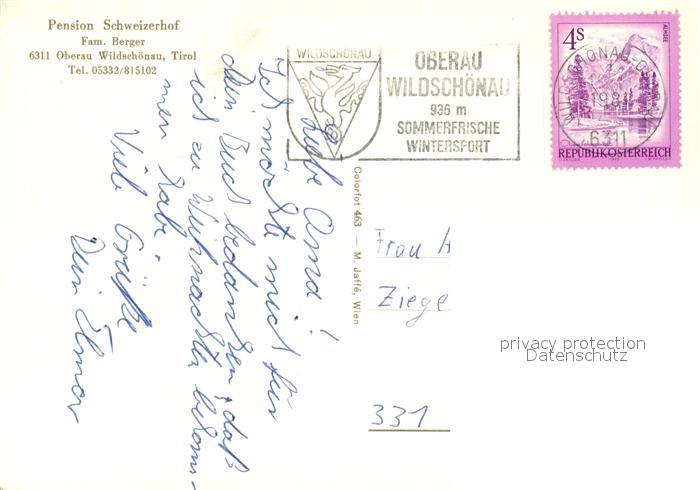 Pension Schweizerhof
Fam. Berger
6311 Oberau Wildschönau, Tirol
Tel. 05332/815102
WILDSCHÖNAU
OBERAU
WILDSCHÖNAU
936 m
SOMMERFRISCHE
WINTERSPORT
4S
ALMSEE
6311
REPUBLIK ÖSTERREICH
Liebe Oma!
Ich möchte mich für
dein Buch bedanken, daß
ich zu Weihnachten bekom-
men habe.
Viele Grüße
Dein Elmar
Colorfot 463 — M. Jaffé, Wien
Frau
Ziege
331
privacy protection
Datenschutz